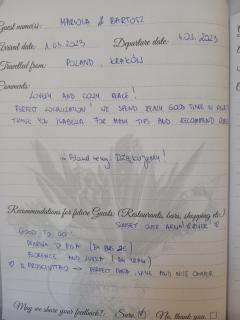 Guest name(s): MARIOLA & BARTOSZ
Arrival date: 1.03.2023 Departure date: 4.03.2023
Travelled from: POLAND, KRAKÓW
Comments:
LOVELY AND COZY PLACE!
PERFECT LOCALIZATION! WE SPEND REALY GOOD TIME IN
THANK YOU ISABELLA FOR MANY TIPS AND RECOMMEND
DZIĘKUJEMY!
Recommendations for future Guests: (Restaurants, bars, shopping etc.)
SUNSET OVER ARNO RIVER
GOOD TO GO:
FLORENCE AND LUCCA (BY TRAIN)
IL PROSCIUTTAIO → PERFECT FOOD, WINE AND NICE OWNER
May we share your feedback?: Sure. No, thank you.